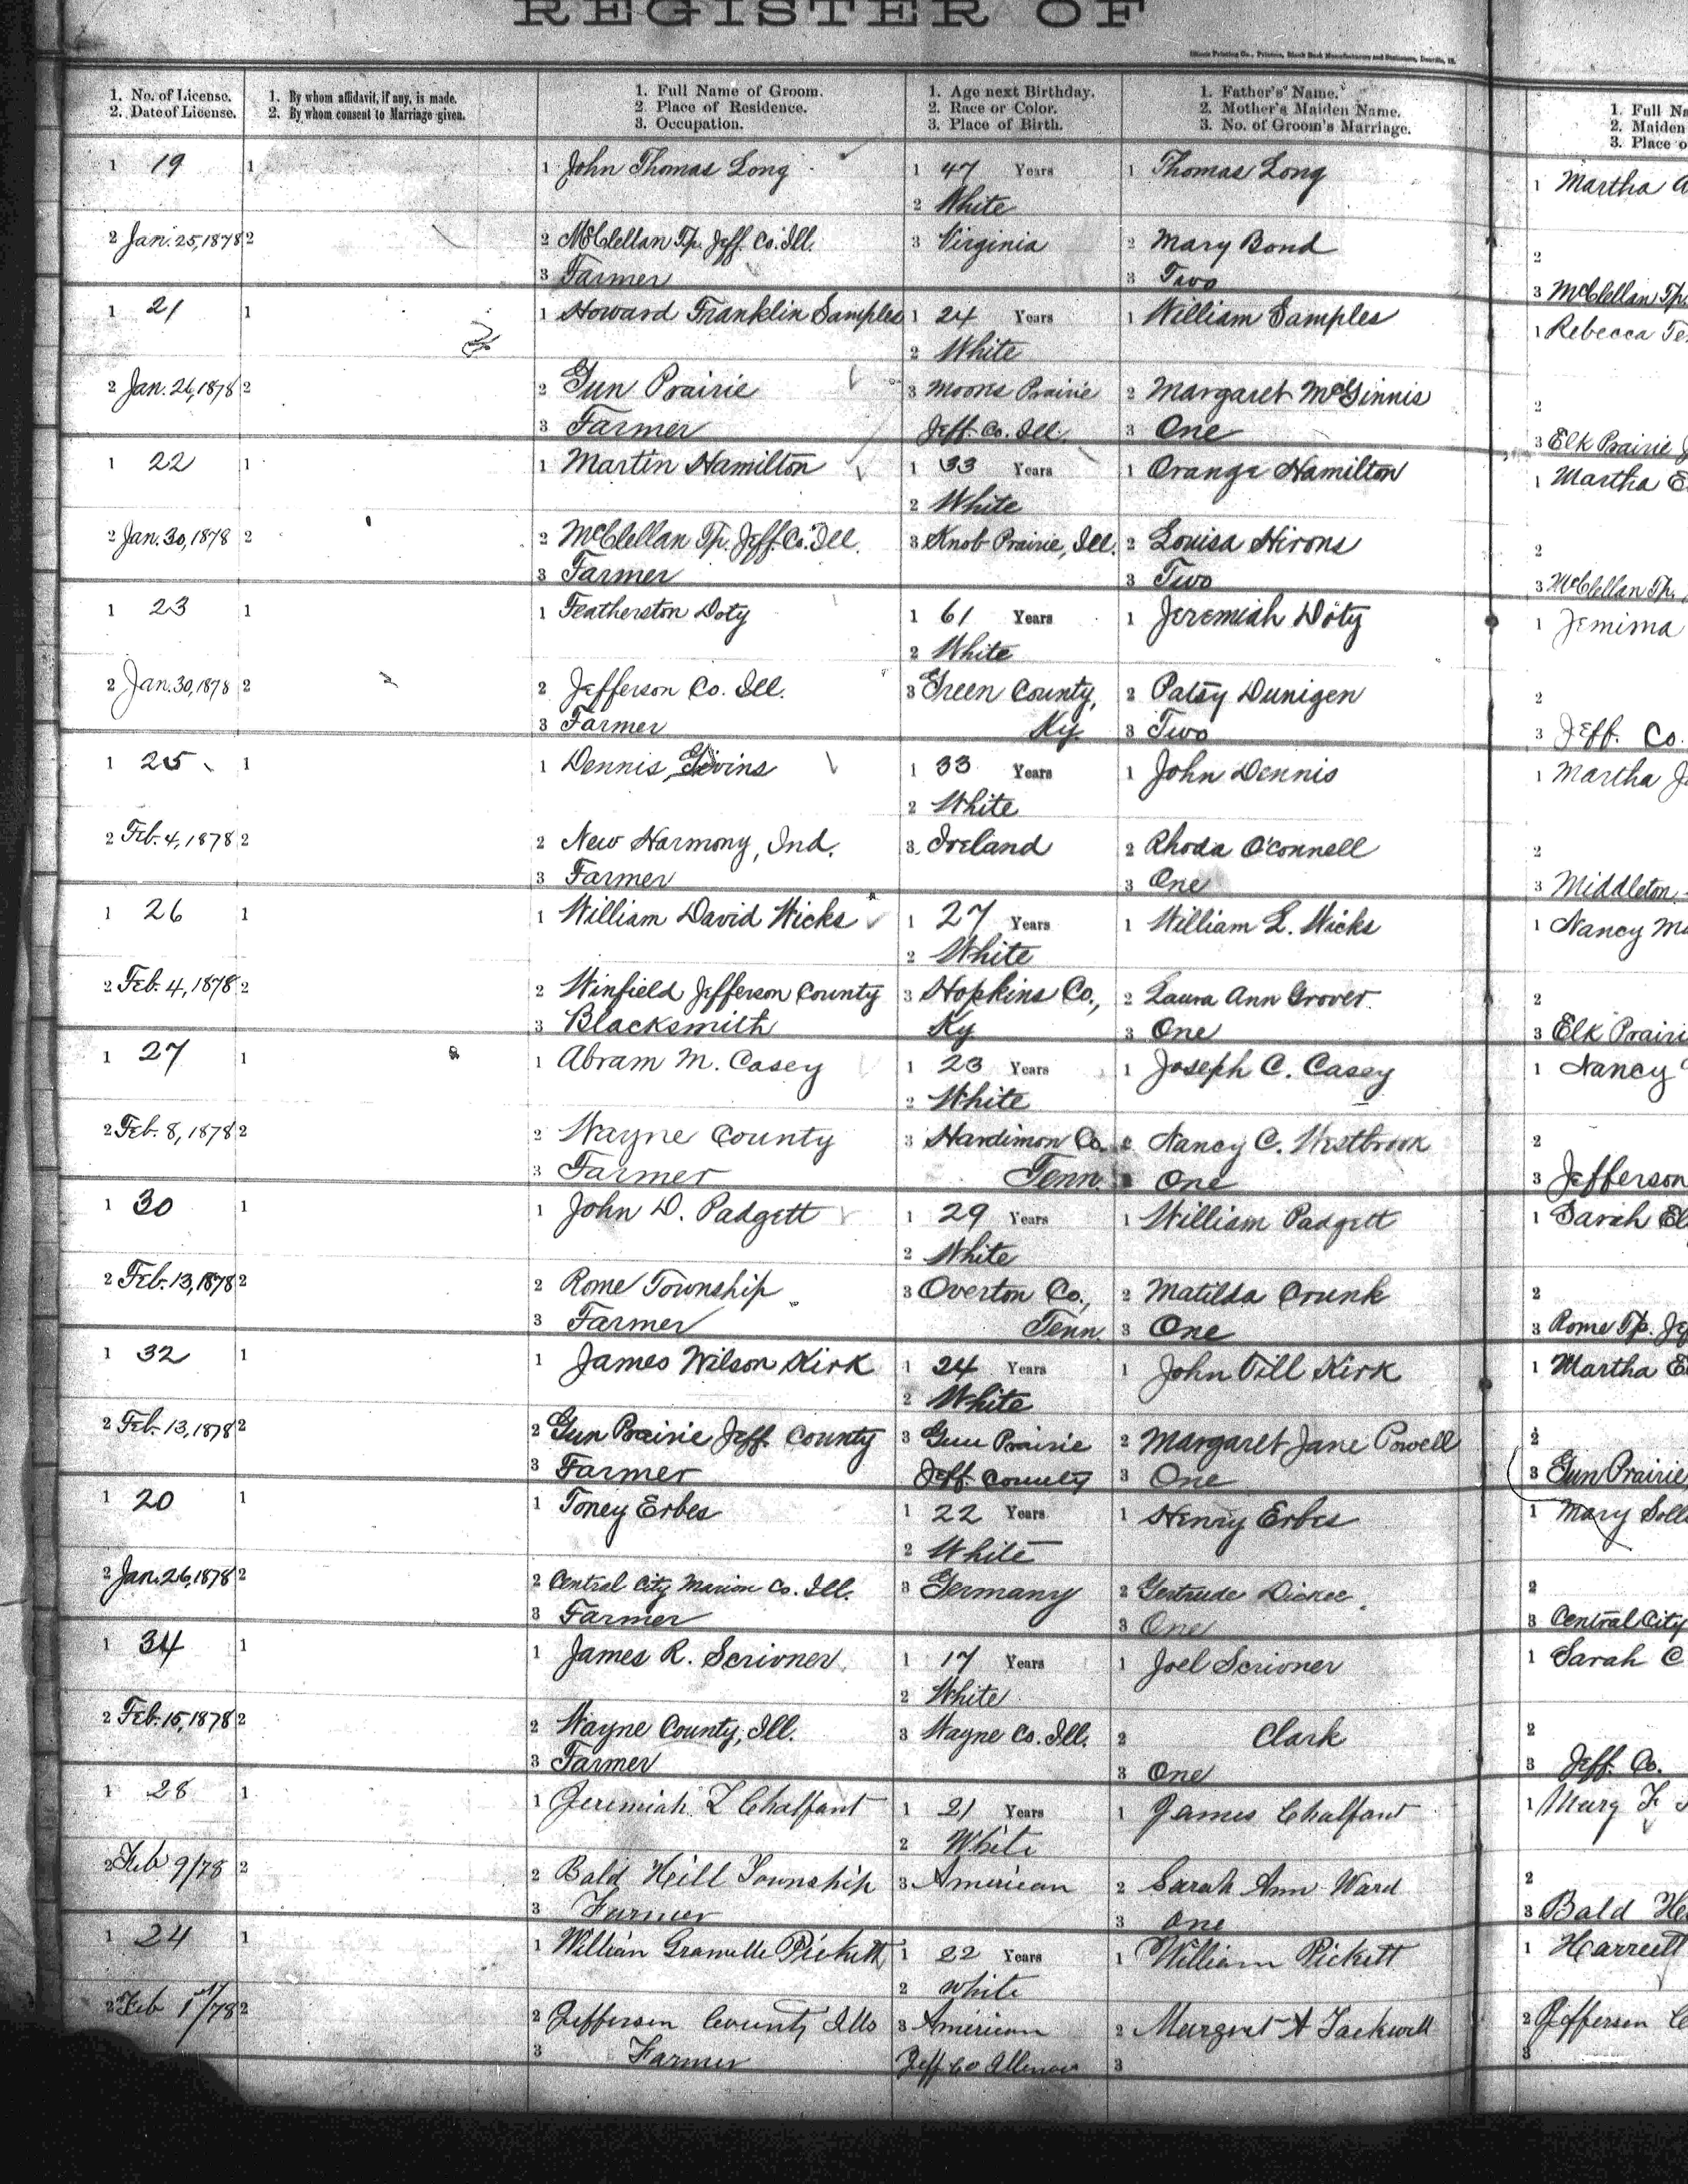 REGISTER OF
Illinois Printing Co., Printers, Blank Book Manufacturers and Stationers, Danville, Ill.
1. No. of License.
2. Date of License.
1. By whom affidavit, if any, is made.
2. By whom consent to Marriage given.
1. Full Name of Groom.
2. Place of Residence.
3. Occupation.
1. Age next Birthday.
2. Race or Color.
3. Place of Birth.
1. Father's Name.
2. Mother's Maiden Name.
3. No. of Groom's Marriage.
1. Full Na
2. Maiden
3. Place o
1 19 1 1 John Thomas Long 1 47 Years 1 Thomas Long 1 Martha A
2 White
2 Jan. 25, 1878 2 2 McClellan Tp. Jeff. Co. Ill. 3 Virginia 2 Mary Bond 2
3 Farmer 3 Two 3 McClellan Tp.
1 21 1 1 Howard Franklin Samples 1 24 Years 1 William Samples 1 Rebecca Te
2 White
2 Jan. 26, 1878 2 2 Gun Prairie 3 Moons Prairie 2 Margaret McGinnis 2
3 Farmer Jeff. Co. Ill. 3 One 3 Elk Prairie J
1 22 1 1 Martin Hamilton 1 33 Years 1 Orange Hamilton 1 Martha E
2 White
2 Jan. 30, 1878 2 2 McClellan Tp. Jeff. Co. Ill. 3 Knob Prairie, Ill. 2 Louisa Hirons 2
3 Farmer 3 Two 3 McClellan Tp.
1 23 1 1 Featherston Doty 1 61 Years 1 Jeremiah Doty 1 Jemima
2 White
2 Jan. 30, 1878 2 2 Jefferson Co. Ill. 3 Green County, 2 Patsy Dunigen 2
3 Farmer Ky. 3 Two 3 Jeff. Co.
1 25 1 1 Dennis, Givins 1 33 Years 1 John Dennis 1 Martha J
2 White
2 Feb. 4, 1878 2 2 New Harmony, Ind. 3 Ireland 2 Rhoda O'Connell 2
3 Farmer 3 One 3 Middleton
1 26 1 1 William David Hicks 1 27 Years 1 William L. Hicks 1 Nancy Ma
2 White
2 Feb. 4, 1878 2 2 Winfield Jefferson County 3 Hopkins Co., 2 Laura Ann Grover 2
3 Blacksmith Ky. 3 One 3 Elk Prairi
1 27 1 1 Abram M. Casey 1 23 Years 1 Joseph C. Casey 1 Nancy
2 White
2 Feb. 8, 1878 2 2 Wayne County 3 Hardimon Co. 2 Nancy C. Westbrook 2
3 Farmer Tenn. 3 One 3 Jefferson
1 30 1 1 John D. Padgett 1 29 Years 1 William Padgett 1 Sarah El
2 White
2 Feb. 13, 1878 2 2 Rome Township 3 Overton Co., 2 Matilda Crunk 2
3 Farmer Tenn. 3 One 3 Rome Tp. Jef
1 32 1 1 James Wilson Kirk 1 24 Years 1 John Till Kirk 1 Martha E
2 White
2 Feb. 13, 1878 2 2 Gun Prairie Jeff. County 3 Gun Prairie 2 Margaret Jane Powell 2
3 Farmer Jeff. County 3 One 3 Gun Prairie,
1 20 1 1 Toney Erbes 1 22 Years 1 Henry Erbes 1 Mary Soll
2 White
2 Jan. 26, 1878 2 2 Central City Marion Co. Ill. 3 Germany 2 Gertrude 2
3 Farmer 3 One 3 Central City
1 34 1 1 James R. Scrivner 1 17 Years 1 Joel Scrivner 1 Sarah C
2 White
2 Feb. 15, 1878 2 2 Wayne County, Ill. 3 Wayne Co. Ill. 2 Clark 2
3 Farmer 3 One 3 Jeff. Co.
1 28 1 1 Jeremiah L Chalfant 1 21 Years 1 James Chalfant 1 Mary F
2 White
2 Feb 9/78 2 2 Bald Hill Township 3 American 2 Sarah Ann Ward 2
3 Farmer 3 One 3 Bald He
1 24 1 1 William Granville Pickett 1 22 Years 1 William Pickett 1 Harreitt
2 White
2 Feb 1st/78 2 2 Jefferson County Ills 3 American 2 Margret A Tackwell 2 Jefferson C
3 Farmer Jeff Co Illinois 3 3